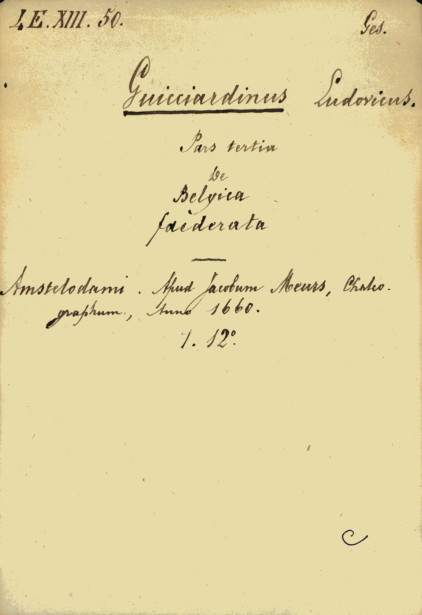 IE.XIII.50. Ges.
Guicciardinus Ludovicus.
Pars tertia
De
Belgica
faederata
Amstelodami. Apud Jacobum Meurs, Chalco
graphum, Anno 1660.
1. 12°.
C